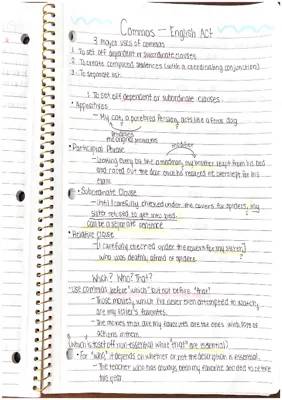 Commas — English ACT
3 major uses of commas
1. To set off dependent or subordinate clauses
2. To create compound sentences (with a coordinating conjunction)
3. To separate list
1. To set off dependent or subordinate clauses
• Appositives
– My cat, a purebred Persian, acts like a feral dog.
renames
the original pronouns
modifier
• Participial Phrase
– Looking every bit the madman, my brother leapt from his bed
and raced out the door once he realized he overslept for his
• Subordinate Clause
– Until I carefully checked under the covers for spiders, my
sister refused to get into bed.
can be a separate sentence
• Relative Clause
– I carefully checked under the covers for my sister,
who was deathly afraid of spiders.
Which? Who? That?
-use commas before "which" but not before "that"
– Those movies, which I've never even attempted to watch,
are my sister's favorites.
– The movies that are my favorites are the ones with lots of
action in them.
(which is to set off non-essential what "that" are essential)
• For "who," it depends on whether or not the description is essential.
– The teacher who has always been my favorite decided to retire
this year.